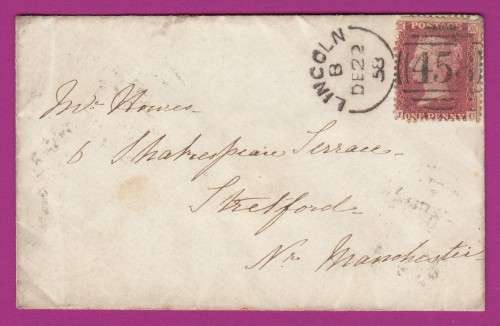 LINCOLN
B
DE 22
58
POSTAGE
45
ONE PENNY
Mr Howes
6 Shakespeare Terrace
Stretford
Nr Manchester